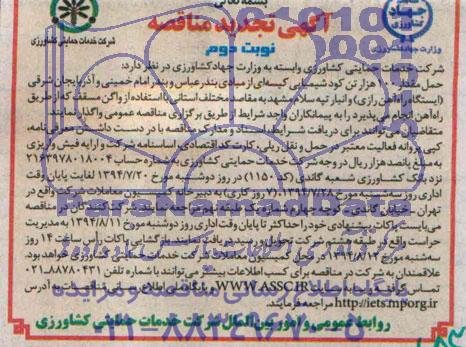 بسمه تعالی
آگهی تجدید مناقصه
نوبت دوم
وزارت جهاد کشاورزی
شرکت خدمات حمایتی کشاورزی
شرکت خدمات حمایتی کشاورزی وابسته به وزارت جهاد کشاورزی در نظر دارد:
حمل مقدار هزار تن کود شیمیایی کیسه‌ای از مبادی بندرعباس و بندر امام خمینی و آذربایجان شرقی
(ایستگاه راه‌آهن رازی) و انبار تپه سلام مشهد به مقاصد مختلف استانها با استفاده از واگن مسقف که از طریق
راه‌آهن انجام می‌پذیرد را به پیمانکاران واجد شرایط از طریق برگزاری مناقصه عمومی واگذار نماید.
متقاضیان می‌توانند برای دریافت شرایط، اسناد و مدارک مناقصه با در دست داشتن معرفی نامه،
کپی پروانه فعالیت معتبر حمل و نقل ریلی، کارت کد اقتصادی، اساسنامه شرکت و ارایه فیش واریزی
به مبلغ پانصد هزار ریال در وجه شرکت خدمات حمایتی کشاورزی به شماره حساب
نزد بانک کشاورزی شعبه گاندی (کد ۱۱۵۰) از روز دوشنبه مورخ ۱۳۹۴/۷/۲۰ لغایت پایان وقت
اداری روز سه‌شنبه مورخ ۱۳۹۴/۷/۲۸ (۷ روز کاری) به دبیرخانه کمیسیون معاملات شرکت واقع در
تهران، خیابان گاندی، کوچه چهارم، شماره یک طبقه هفتم مراجعه نمایند. شرکت کنندگان در مناقصه
می‌بایست پاکات پیشنهادی خود را حداکثر تا پایان وقت اداری روز دوشنبه مورخ ۱۳۹۴/۸/۱۱ به مدیریت
حراست واقع در طبقه هفتم شرکت تحویل و رسید دریافت نمایند. بازگشایی پاکات رأس ساعت ۱۴ روز
سه‌شنبه مورخ ۱۳۹۴/۸/۱۲ در محل کمیسیون معاملات شرکت خدمات حمایتی کشاورزی خواهد بود.
علاقمندان به شرکت در مناقصه برای کسب اطلاعات بیشتر می‌توانند با شماره تلفن ۸۸۷۸۰۴۳۱-۰۲۱
تماس گرفته و یا به WWW.ASSC.IR و پایگاه ملی اطلاع رسانی مناقصات به آدرس
http://iets.mporg.ir مراجعه فرمایند.
روابط عمومی و امور بین‌الملل شرکت خدمات حمایتی کشاورزی
ParsNamadData
پایگاه اطلاع رسانی مناقصه و مزایده
۰۲۱-۸۸۳۴۹۶۷۰-۵